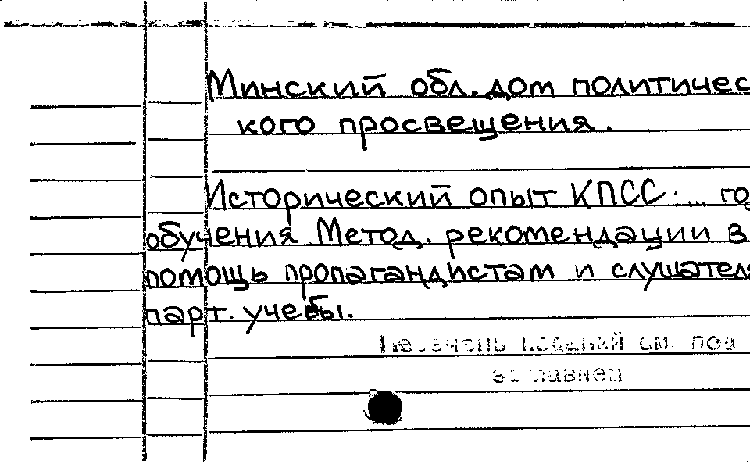 Минский обл. дом политичес
кого просвещения.
Исторический опыт КПСС... го
обучения Метод. рекомендации в
помощь пропагандистам и слушателя
парт. учебы.
Перечень изданий см. под
заглавием